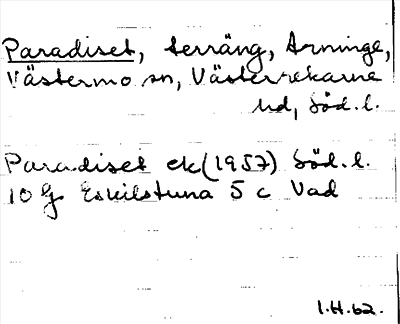 Paradiset, terräng, Arninge,
Västermo sn, Västerrekarne
hd, Söd. l.
Paradiset ek (1957) Söd. l.
10 G Eskilstuna 5 c Vad
I.H. 62.